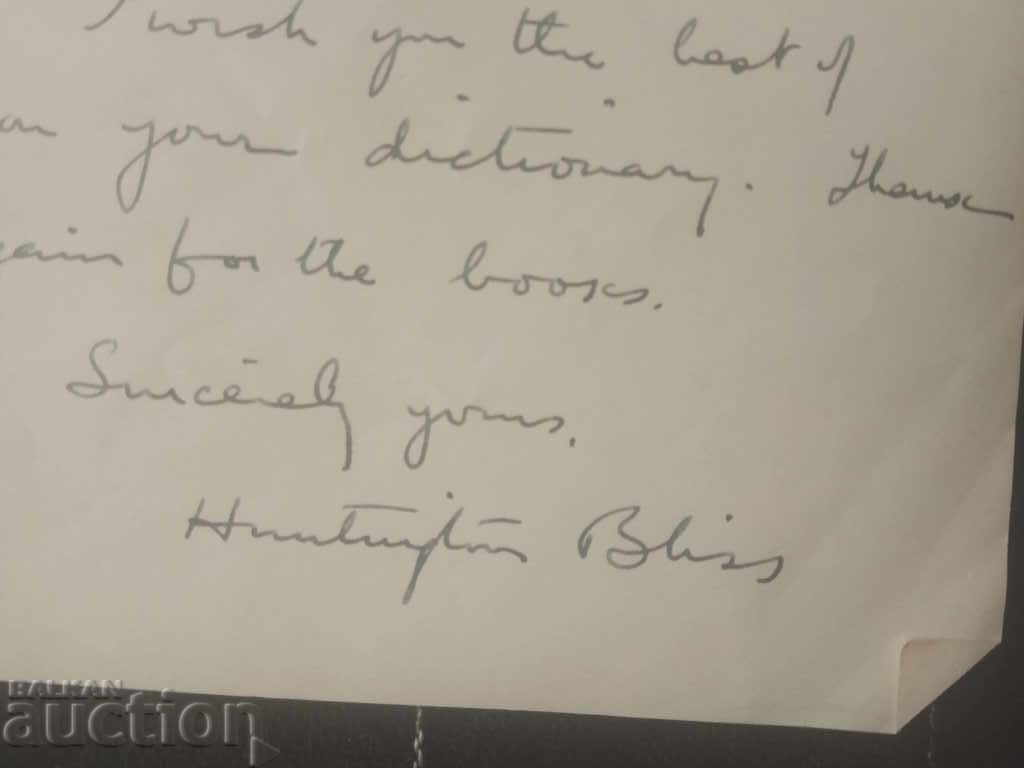 I wish you the best of
on your dictionary. Thank
gain for the books.
Sincerely yours,
Huntington Bliss
BALKAN
auction